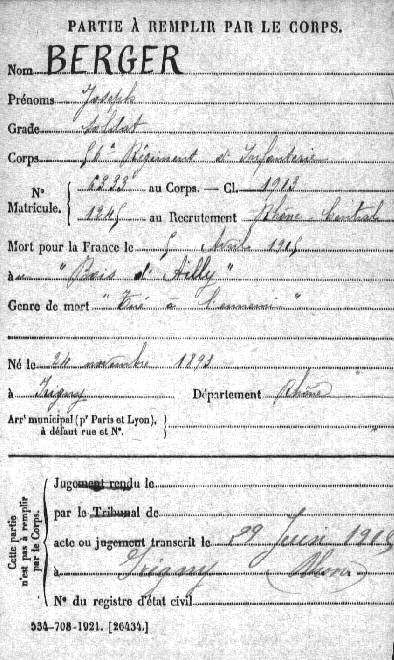 PARTIE À REMPLIR PAR LE CORPS.
Nom BERGER
Prénoms Joseph
Grade Soldat
Corps Régiment d'Infanterie
Nº Matricule. { au Corps. — Cl. 1913
au Recrutement Rhône-Central
Mort pour la France le Avril 1915
à "Bois d'Ailly"
Genre de mort "Tué à l'ennemi"
Né le 24 novembre 1893
à Irigny Département Rhône
Arrt municipal (pr Paris et Lyon), à défaut rue et Nº. }
Cette partie n'est pas à remplir par le Corps.
Jugement rendu le
par le Tribunal de
acte ou jugement transcrit le 29 Juin 1915
à Irigny (Rhône)
Nº du registre d'état civil
534-708-1921. [26434.]